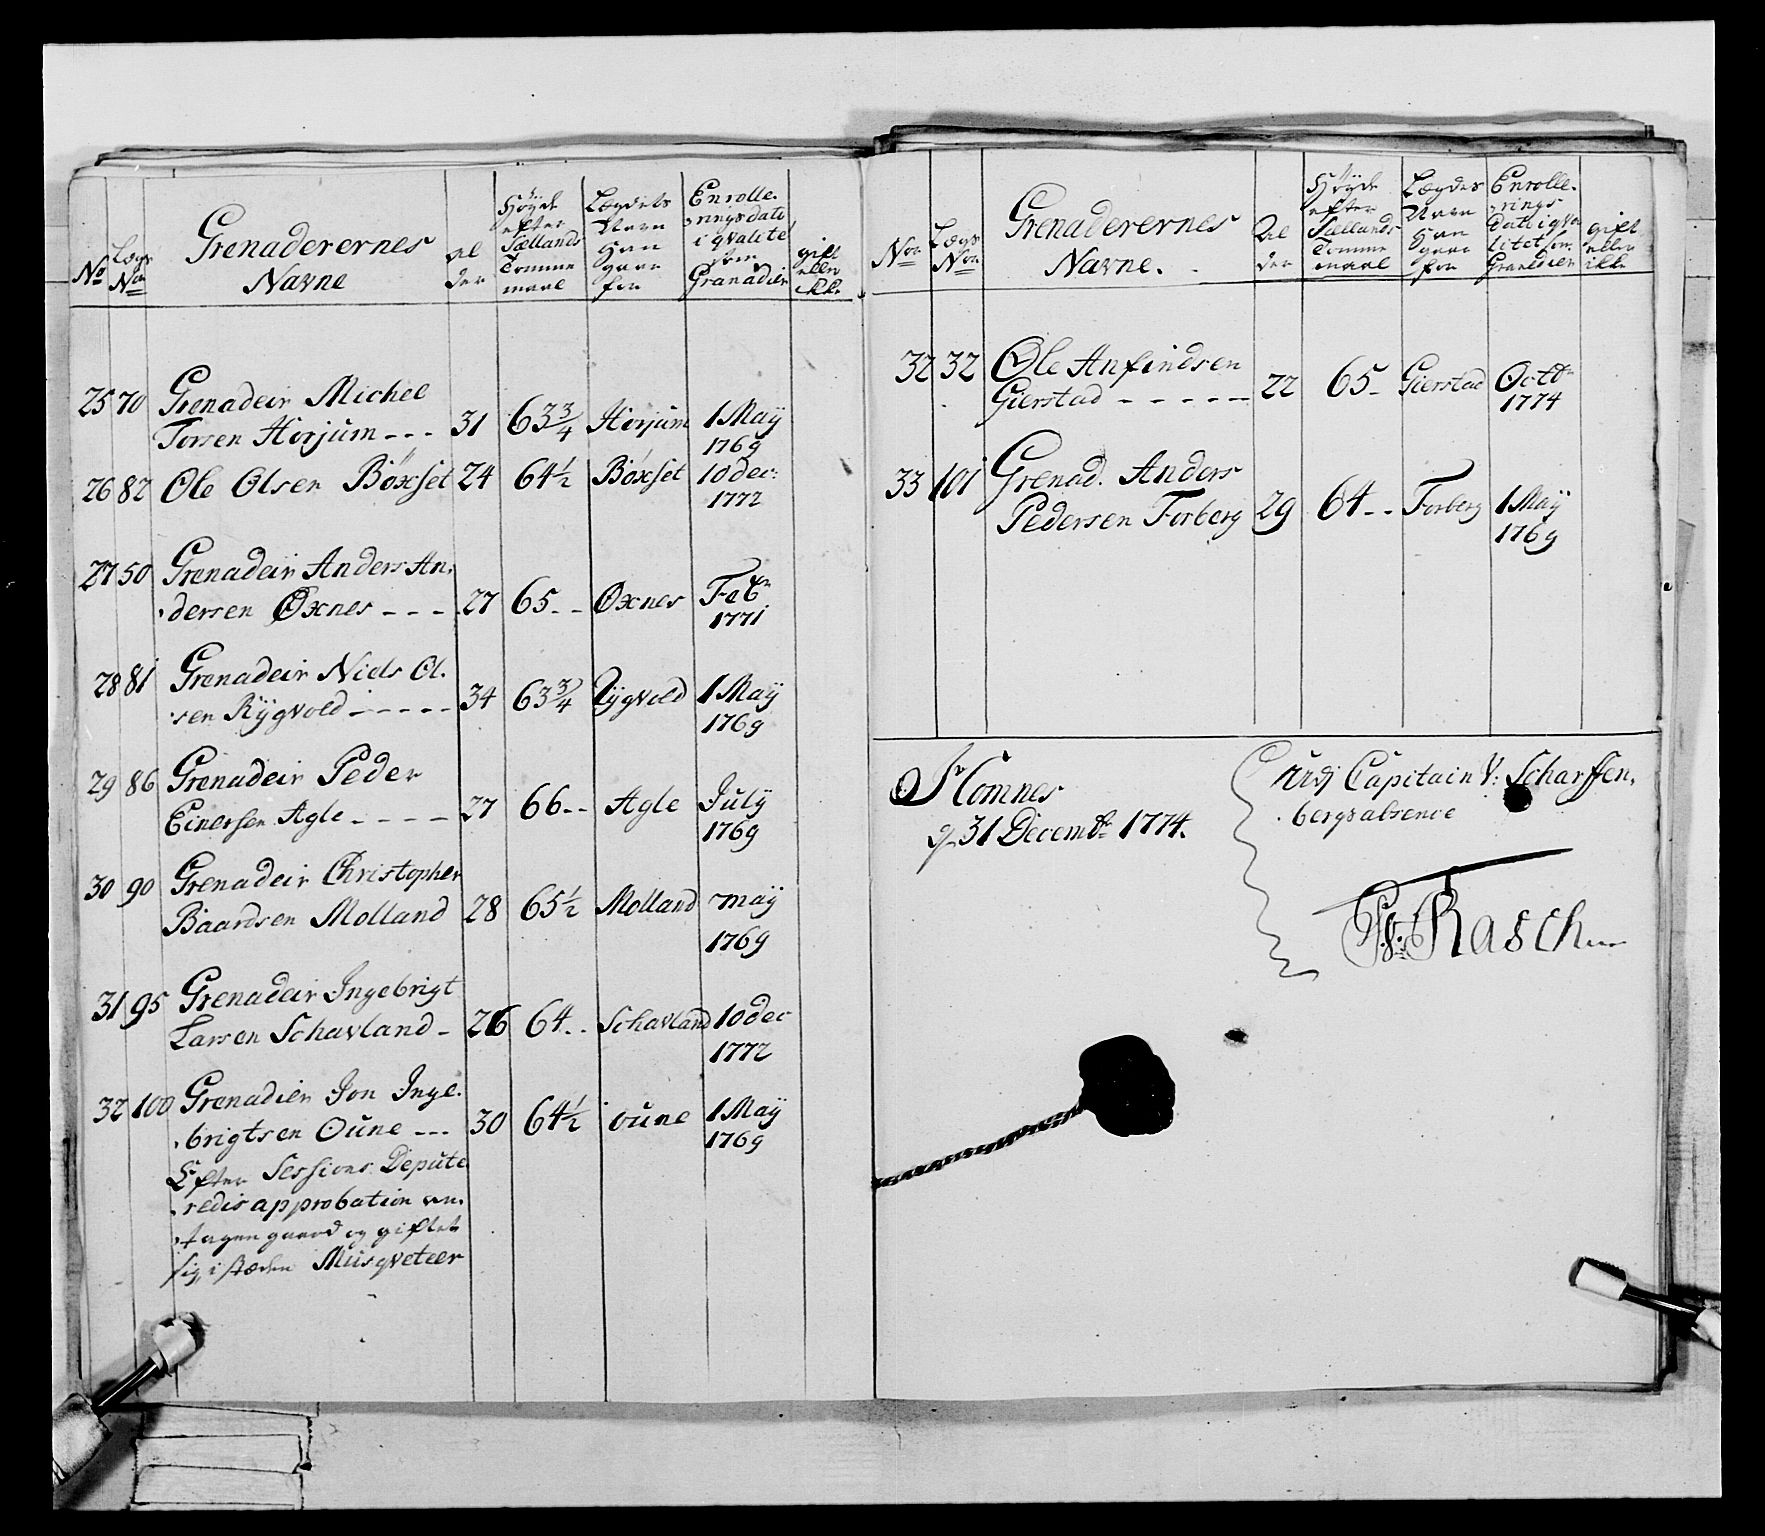 No
Lægs
No
Grenaderernes
Navne
Al
der
Høyde
efter
Sællands
Tomme
maal
Lægdets
Navn
han
gaar
for
Enrolle-
ringsdato
i qvalite
som
Granadier
gift
eller
ikke
25 70 Grenadeir Michel
Torsen Horjum --- 31 63 3/4 Horjum 1 May
1769
26 82 Ole Olsen Böxset 24 64 1/2 Böxset 10 dec:
1772
27 50 Grenadeir Anders An-
dersen Oxnes ---- 27 65-- Oxnes Febr
1771
28 81 Grenadeir Niels Ol-
sen Rÿgvold ----- 34 63 3/4 Rygvold 1 Maÿ
1769
29 86 Grenadeir Peder
Einersen Agle ---- 27 66-- Agle Julÿ
1769
30 90 Grenadeir Christopher
Baardsen Molland 28 65 1/2 Molland maÿ
1769
31 95 Grenadeir Ingebrigt
Larsen Schavland - 26 64-- Schavland 10 dec
1772
32 100 Grenadier Jon Inge-
brigtsen Oune --- 30 64 1/2 Oune 1 Maÿ
1769
Efter Sessions Depute-
redes approbation an-
tagen gaard og giftet
sig, i stæden Musqveteer
Nor
Lægs
Nor
Grenaderernes
Navne.
Al
der
Høyde
efter
Sællands
Tomme
maal
Lægdes
Navn
han
gaar
for
Enrolle-
rings
Dato i qva
litet som
Granedier
gift
eller
ikke
32 32 Ole Anfindsen
Gierstad ------ 22 65- Gierstad Octbr
1774
33 101 Grenad. Anders
Pedersen Forberg 29 64-- Forberg 1 Maÿ
1769
Homnes
31 Decembr 1774.
Udj Capitain V: Scharffen-
bergs absence
Rasch